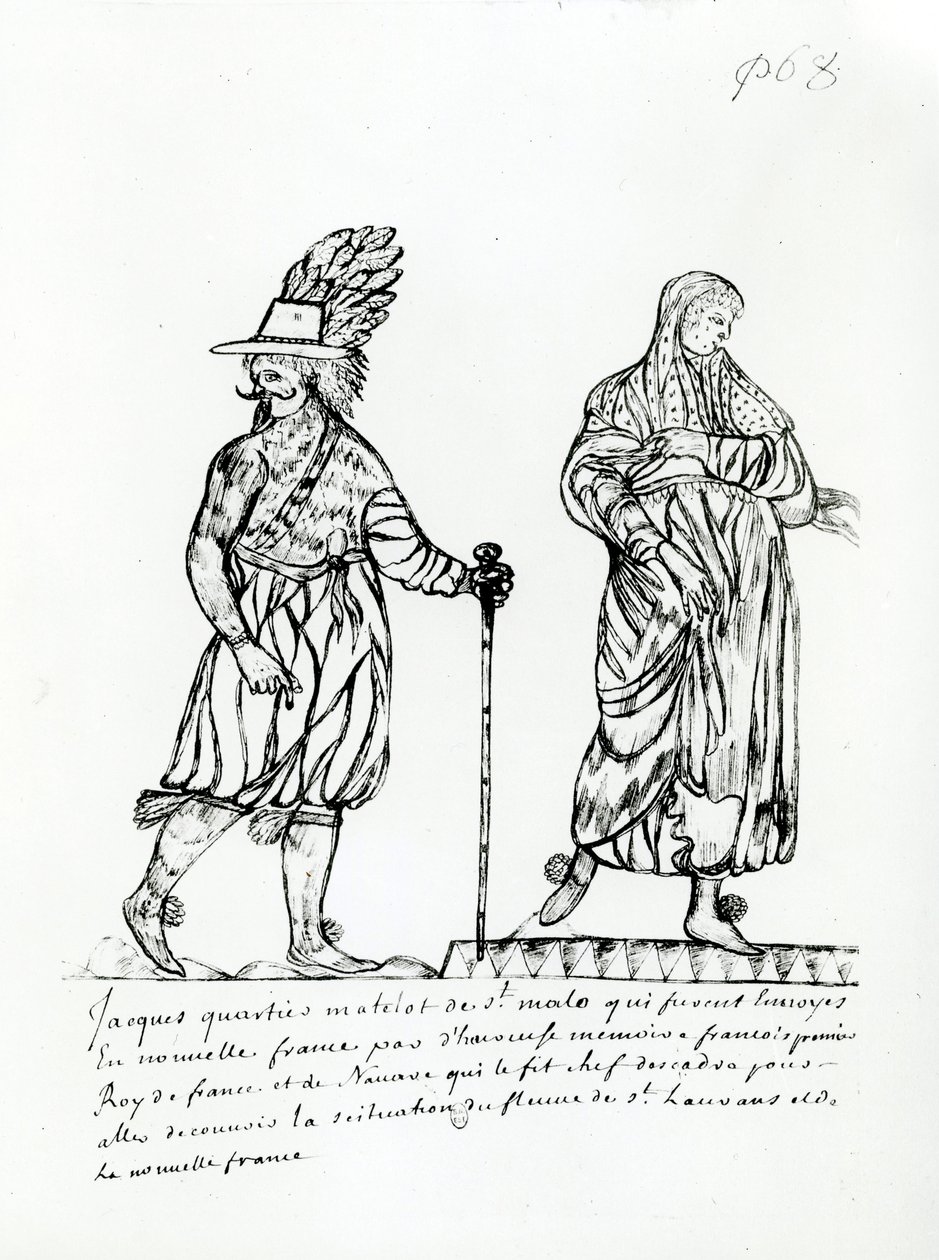 p 68
Jacques quartier matelot de st. malo qui furent Envoyes
En nouvelle france par d'heureuse memoire francois premier
Roy de france et de Navare qui le fit chef descadre pour
aller decouvrir la scituation du fleuve de st. Lauvans et de
La nouvelle france